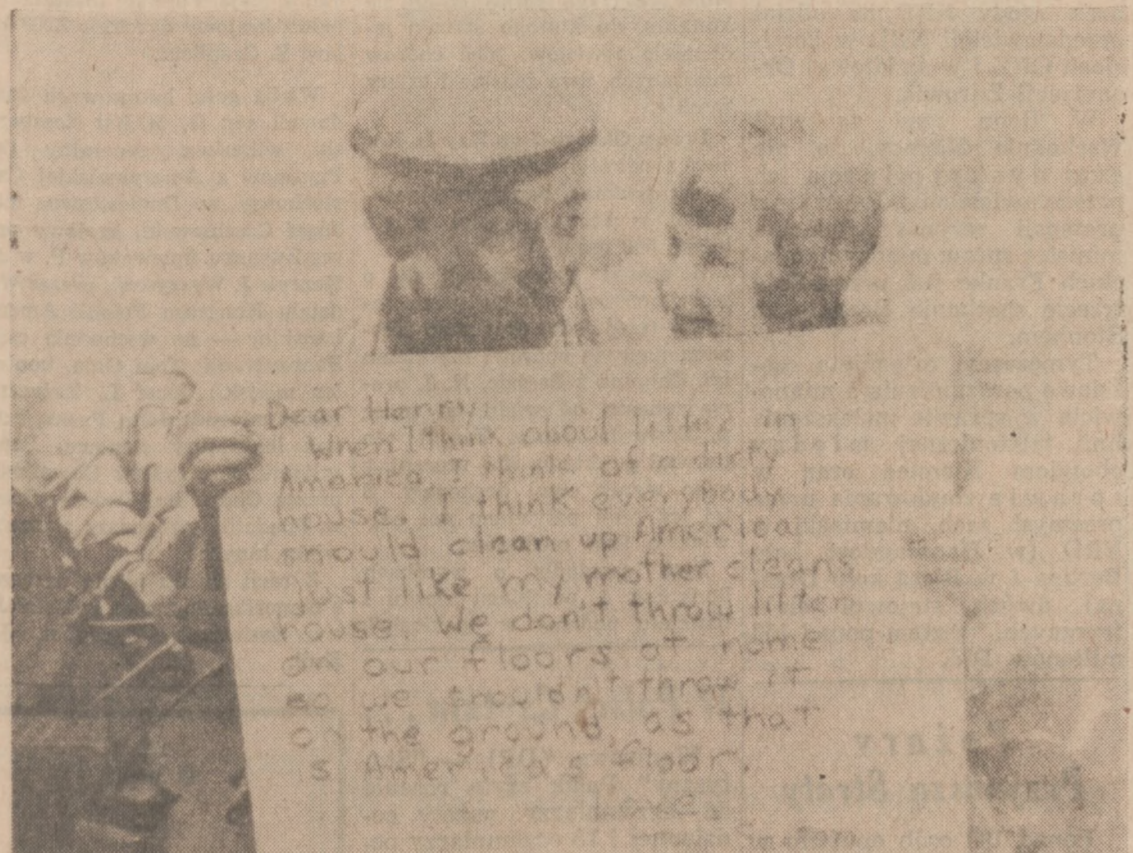 Dear Henry,
When I think about litter in
America, I think of a dirty
house. I think everybody
should clean up America
just like my mother cleans
house. We don't throw litter
on our floors at home
so we shouldn't throw it
on the ground, as that
is America's floor.
Love